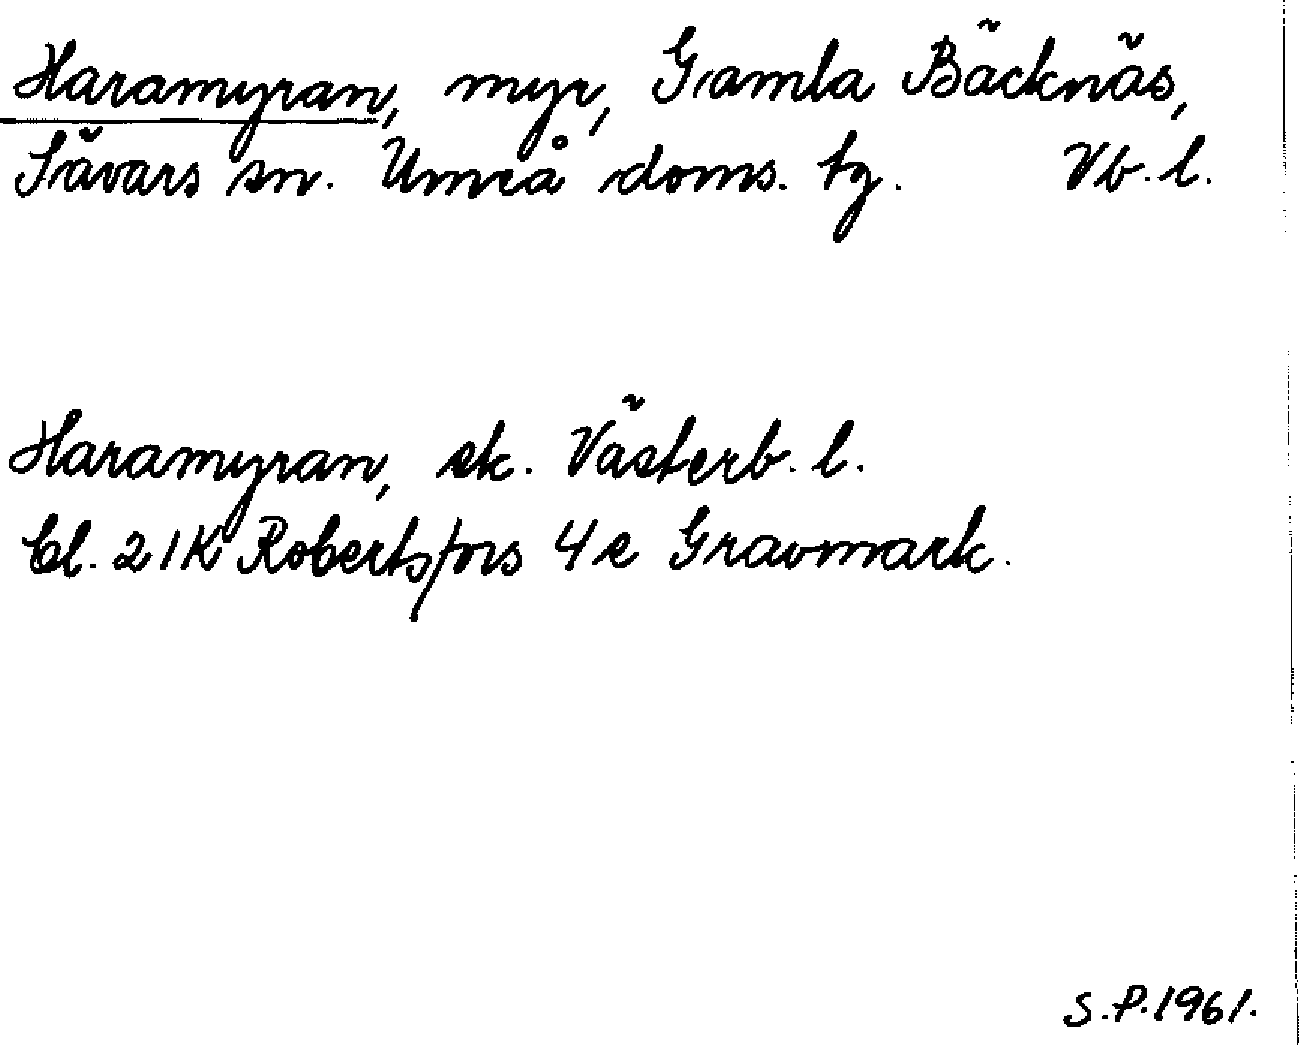 Haramyran, myr, Gamla Bäcknäs,
Sävars sn. Umeå doms. tg. Vb. l.
Haramyran, ek. Västerb. l.
Bl. 21K Robertsfors 4e Gravmark.
S.P. 1961.